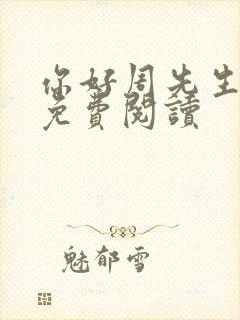 你好周先生
免費閱讀
魅郁雪